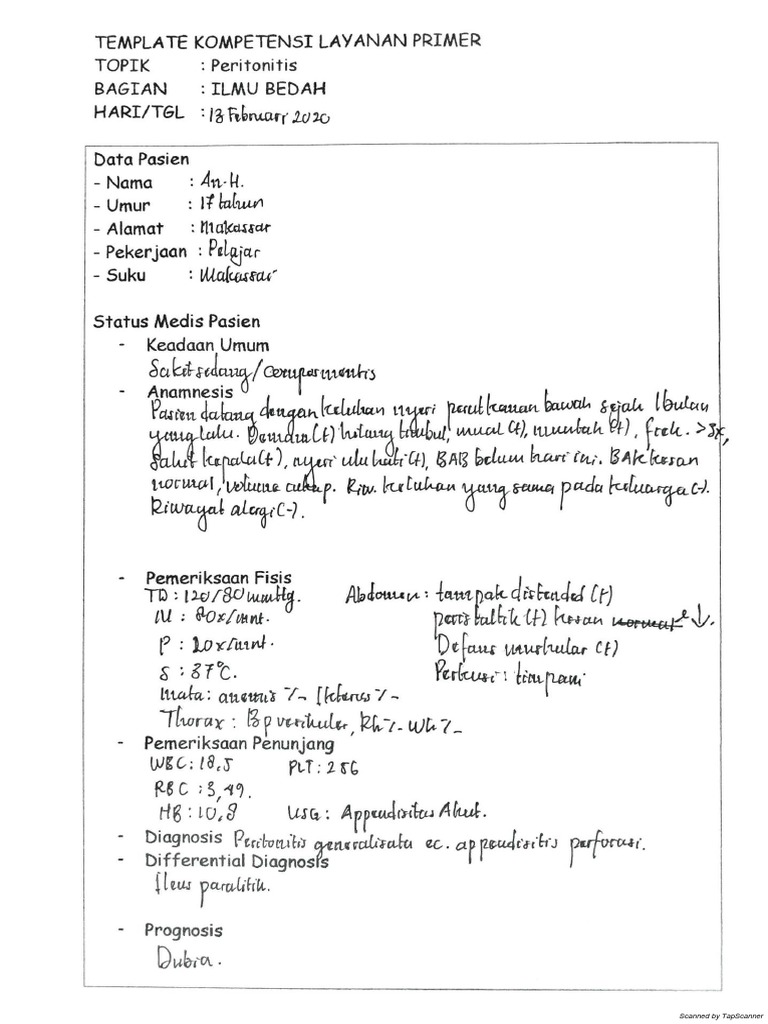 TEMPLATE KOMPETENSI LAYANAN PRIMER
TOPIK : Peritonitis
BAGIAN : ILMU BEDAH
HARI/TGL : 13 Februari 2020
Data Pasien
- Nama : An. H.
- Umur : 17 tahun
- Alamat : Makassar
- Pekerjaan : Pelajar
- Suku : Makassar
Status Medis Pasien
- Keadaan Umum
Sakit sedang / Composmentis
- Anamnesis
Pasien datang dengan keluhan nyeri perut kanan bawah sejak 1 bulan
yang lalu. Demam (+) hilang timbul, mual (+), muntah (+), frek. >3x,
sakit kepala (+), nyeri ulu hati (+), BAB belum hari ini. BAK kesan
normal, volume cukup. Riw. keluhan yang sama pada keluarga (-).
Riwayat alergi (-).
- Pemeriksaan Fisis
TD : 120/80 mmHg. Abdomen : tampak distended (+)
N : 80x/mnt. peristaltik (+) kesan normal ↓.
P : 20x/mnt. Defans muskular (+)
S : 37°C. Perkusi : timpani
Mata : anemis -/- Ikterus -/-
Thorax : Bp vesikuler, Rh -/- Wh -/-
- Pemeriksaan Penunjang
WBC : 18,5 PLT : 256
RBC : 3,49.
HB : 10,9 USG : Appendisitas Akut.
- Diagnosis Peritonitis generalisata ec. appendisitis perforasi.
- Differential Diagnosis
Ileus paralitik.
- Prognosis
Dubia.
Scanned by TapScanner